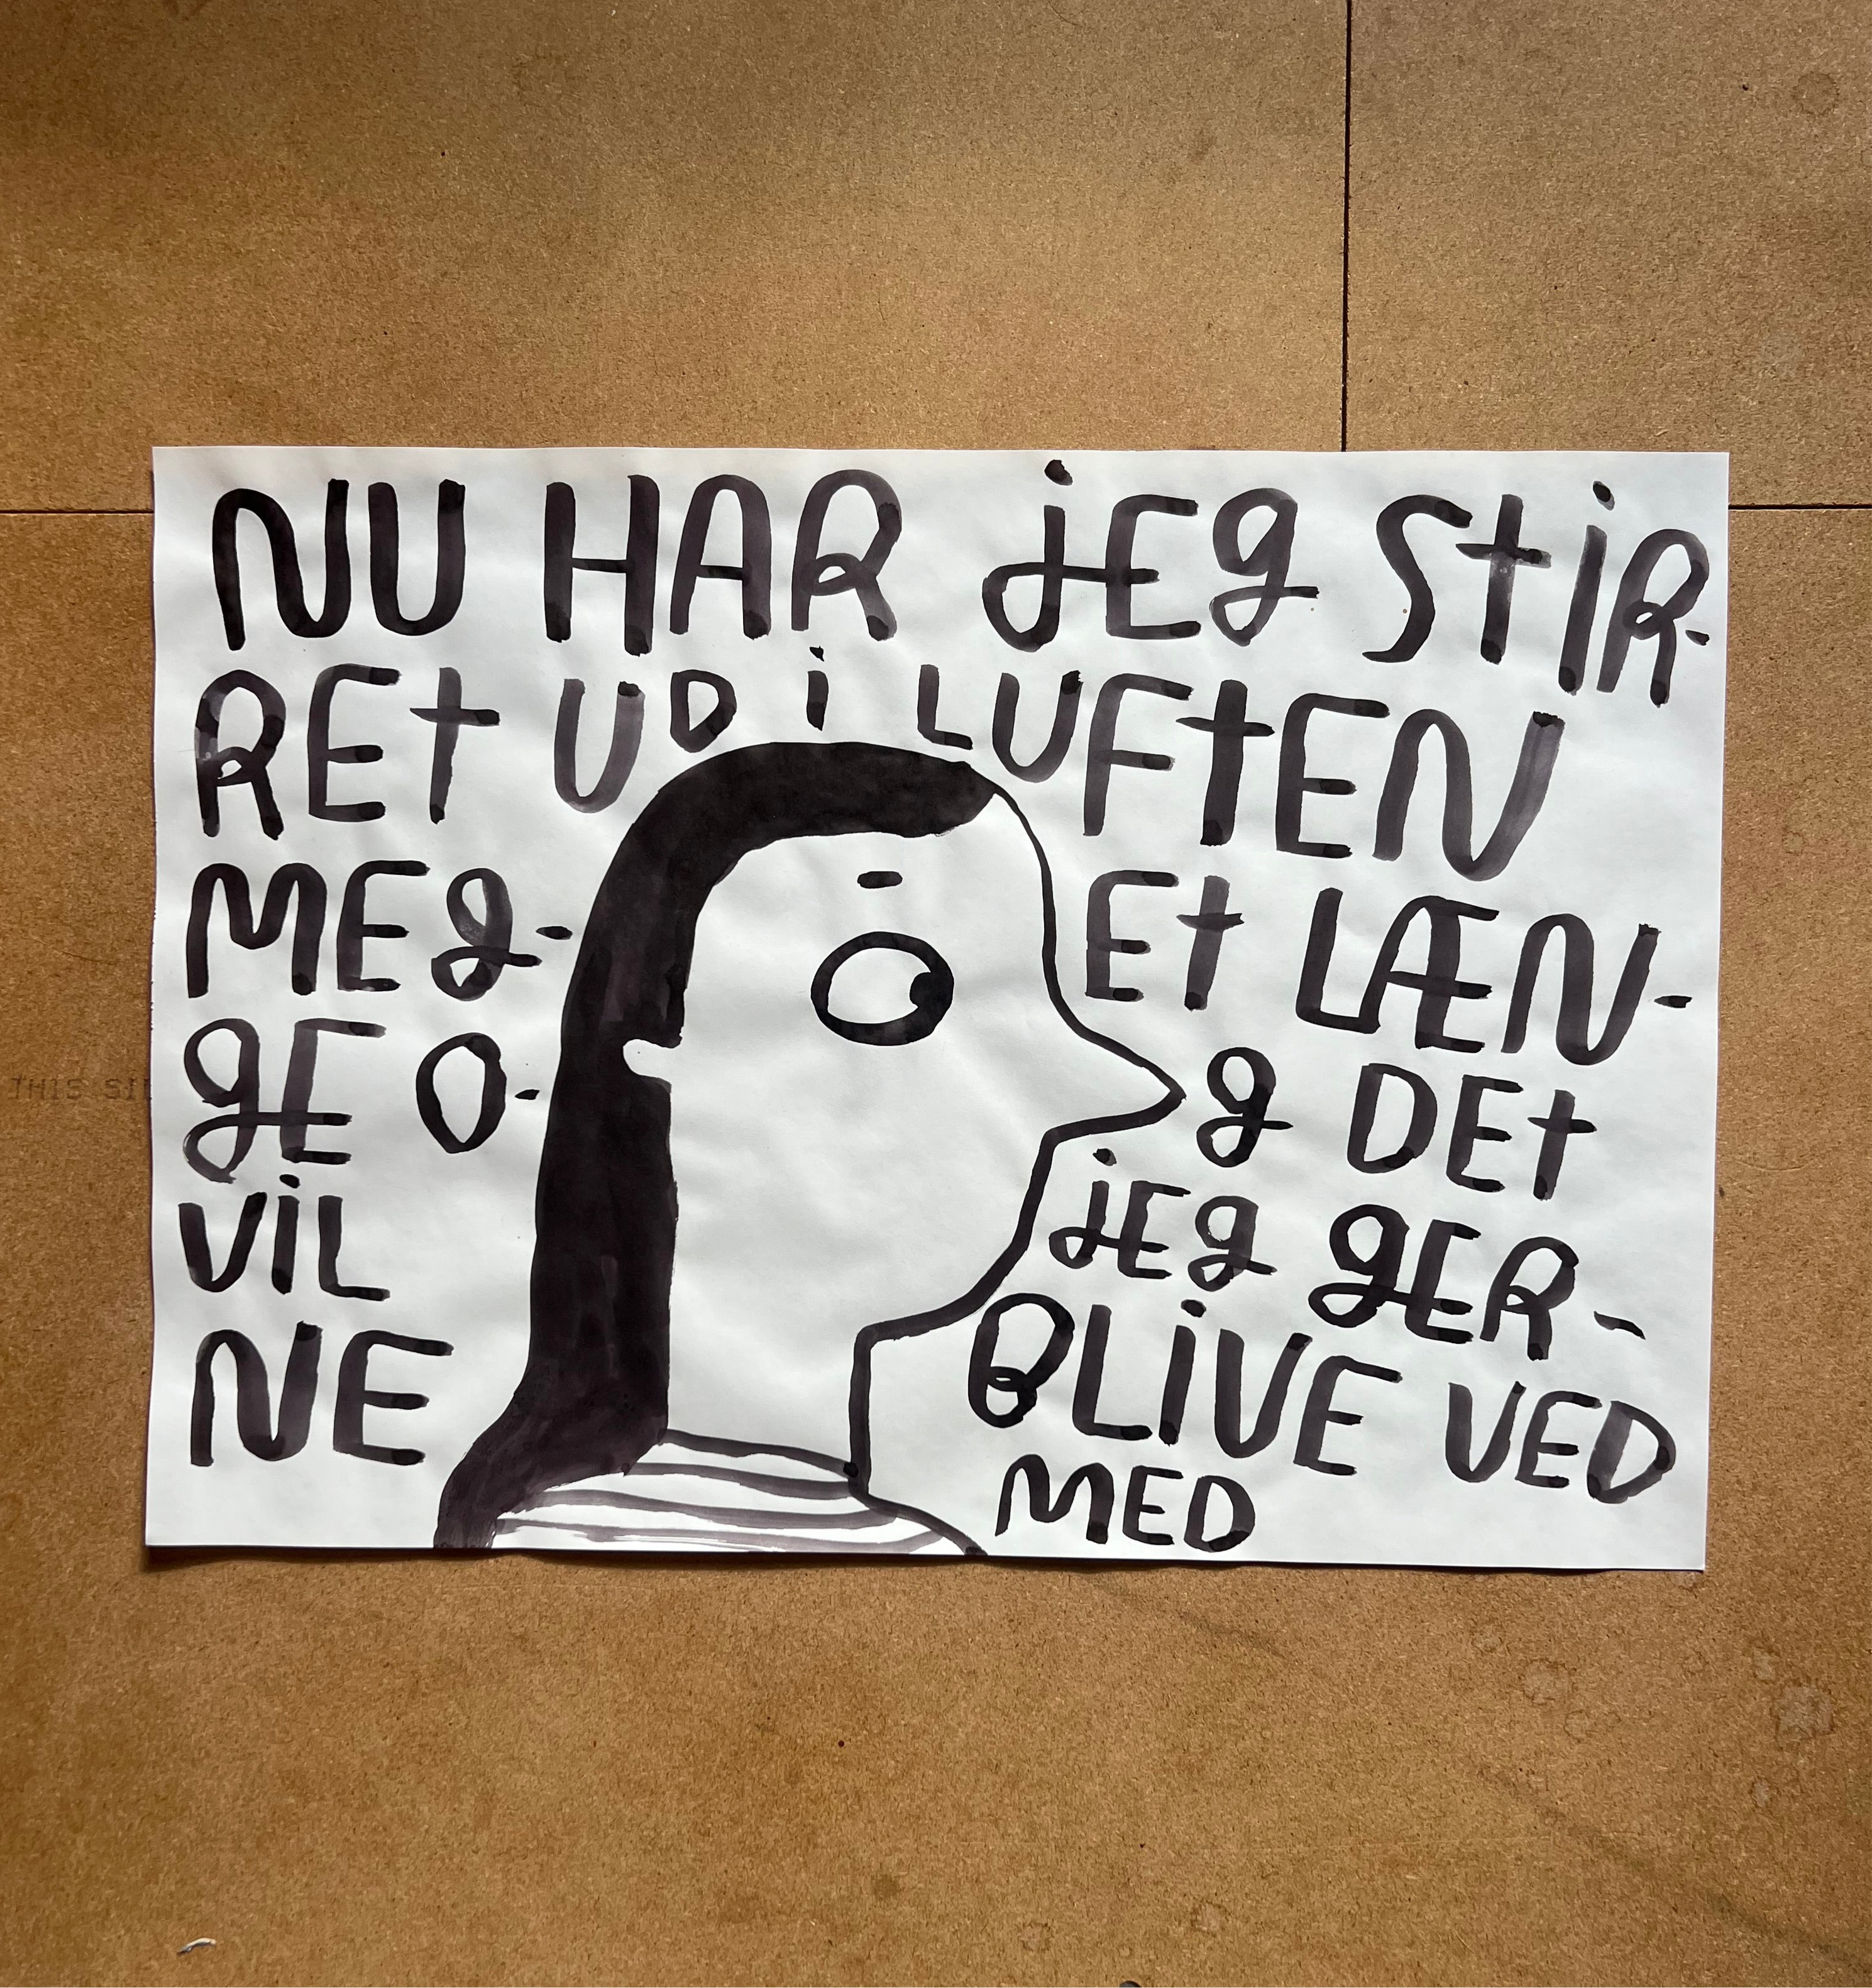 NU HAR JEG STIR-
RET UD I LUFTEN
MEG- ET LÆN-
GE O- G DET
VIL JEG GER-
NE BLIVE VED
MED
THIS SI